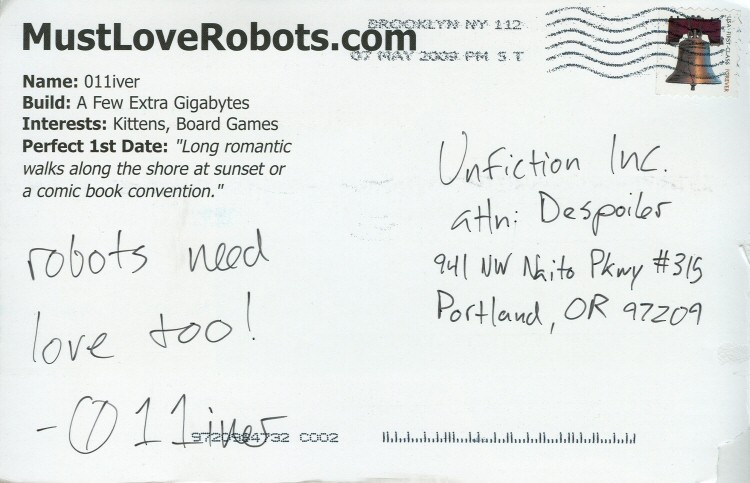 MustLoveRobots.com
BROOKLYN NY 112
07 MAY 2009 PM 5 T
Name: 011iver
Build: A Few Extra Gigabytes
Interests: Kittens, Board Games
Perfect 1st Date: "Long romantic
walks along the shore at sunset or
a comic book convention."
robots need
love too!
- 011iver
Unfiction Inc.
attn: Despoiler
941 NW Naito Pkwy #315
Portland, OR 97209
9720984732 C002